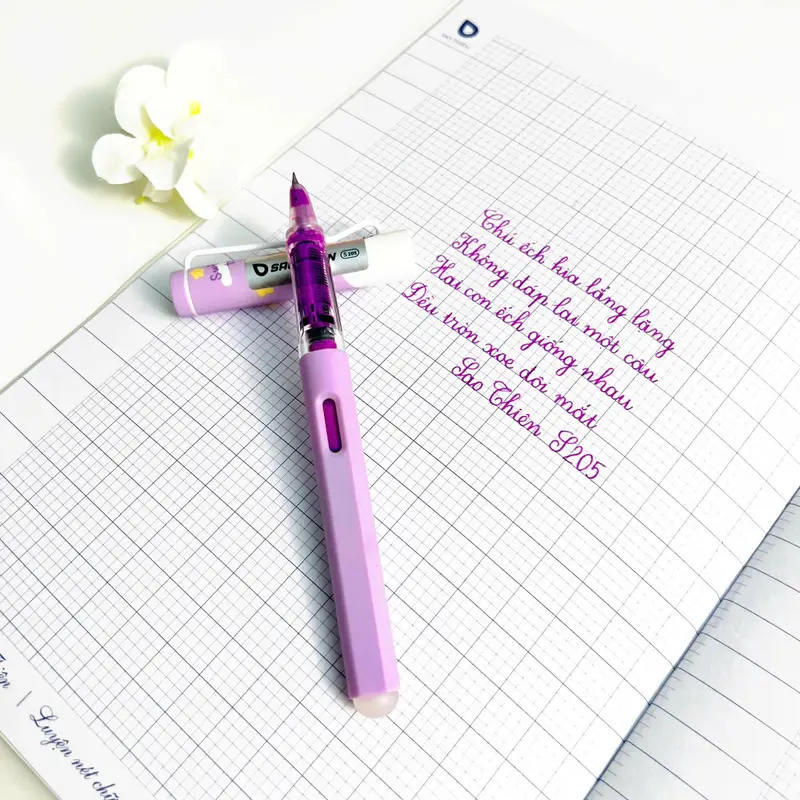 SAO THIÊN
Chú ếch kia lẳng lặng
Không đáp lại một câu
Hai con ếch giống nhau
Đều tròn xoe đôi mắt
Sao Thiên S205
S 205
Luyện nét chữ